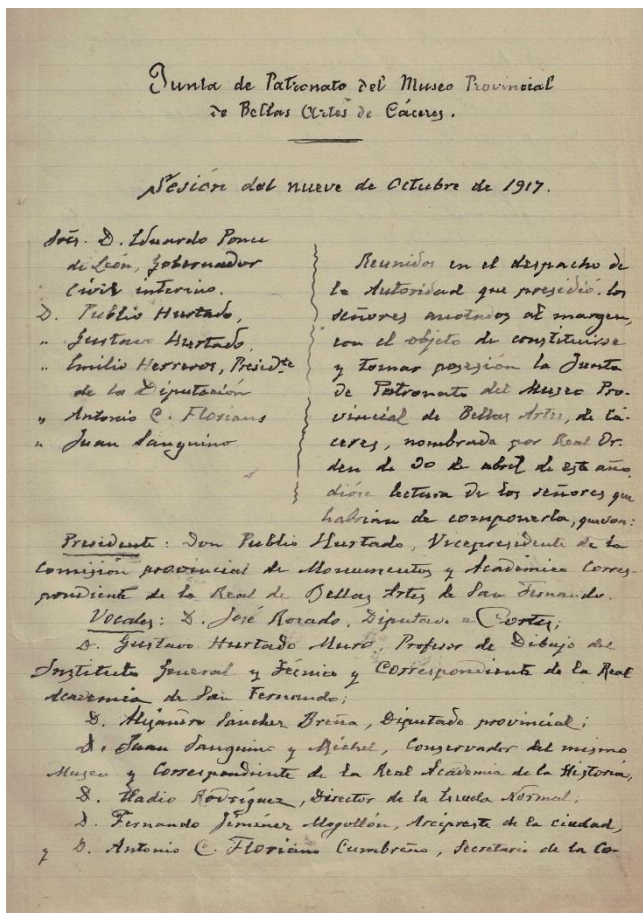 Junta de Patronato del Museo Provincial
de Bellas Artes de Cáceres.
Sesión del nueve de Octubre de 1917.
Sres. D. Eduardo Ponce
de León, Gobernador
Civil interino.
D. Publio Hurtado,
" Gustavo Hurtado,
" Emilio Herreros, Presidte
de la Diputación
" Antonio C. Floriano
" Juan Sanguino
Reunidos en el despacho de
la Autoridad que presidió los
señores anotados al margen,
con el objeto de constituirse
y tomar posesión la Junta
de Patronato del Museo Pro-
vincial de Bellas Artes, de Cá-
ceres, nombrada por Real Or-
den de 20 de abril de este año,
dióse lectura de los señores que
habrían de componerla, que son:
Presidente: Don Publio Hurtado, Vicepresidente de la
Comisión provincial de Monumentos y Académico Corres-
pondiente de la Real de Bellas Artes de San Fernando.
Vocales: D. José Rosado, Diputado a Cortes;
D. Gustavo Hurtado Muro, Profesor de Dibujo del
Instituto General y Técnico y Correspondiente de la Real
Academia de San Fernando;
D. Alejandro Sánchez Breña, Diputado provincial;
D. Juan Sanguino y Michel, Conservador del mismo
Museo y Correspondiente de la Real Academia de la Historia;
D. Eladio Rodríguez, Director de la Escuela Normal;
D. Fernando Jiménez Mogollón, Arcipreste de la ciudad,
y D. Antonio C. Floriano Cumbreño, Secretario de la Co-